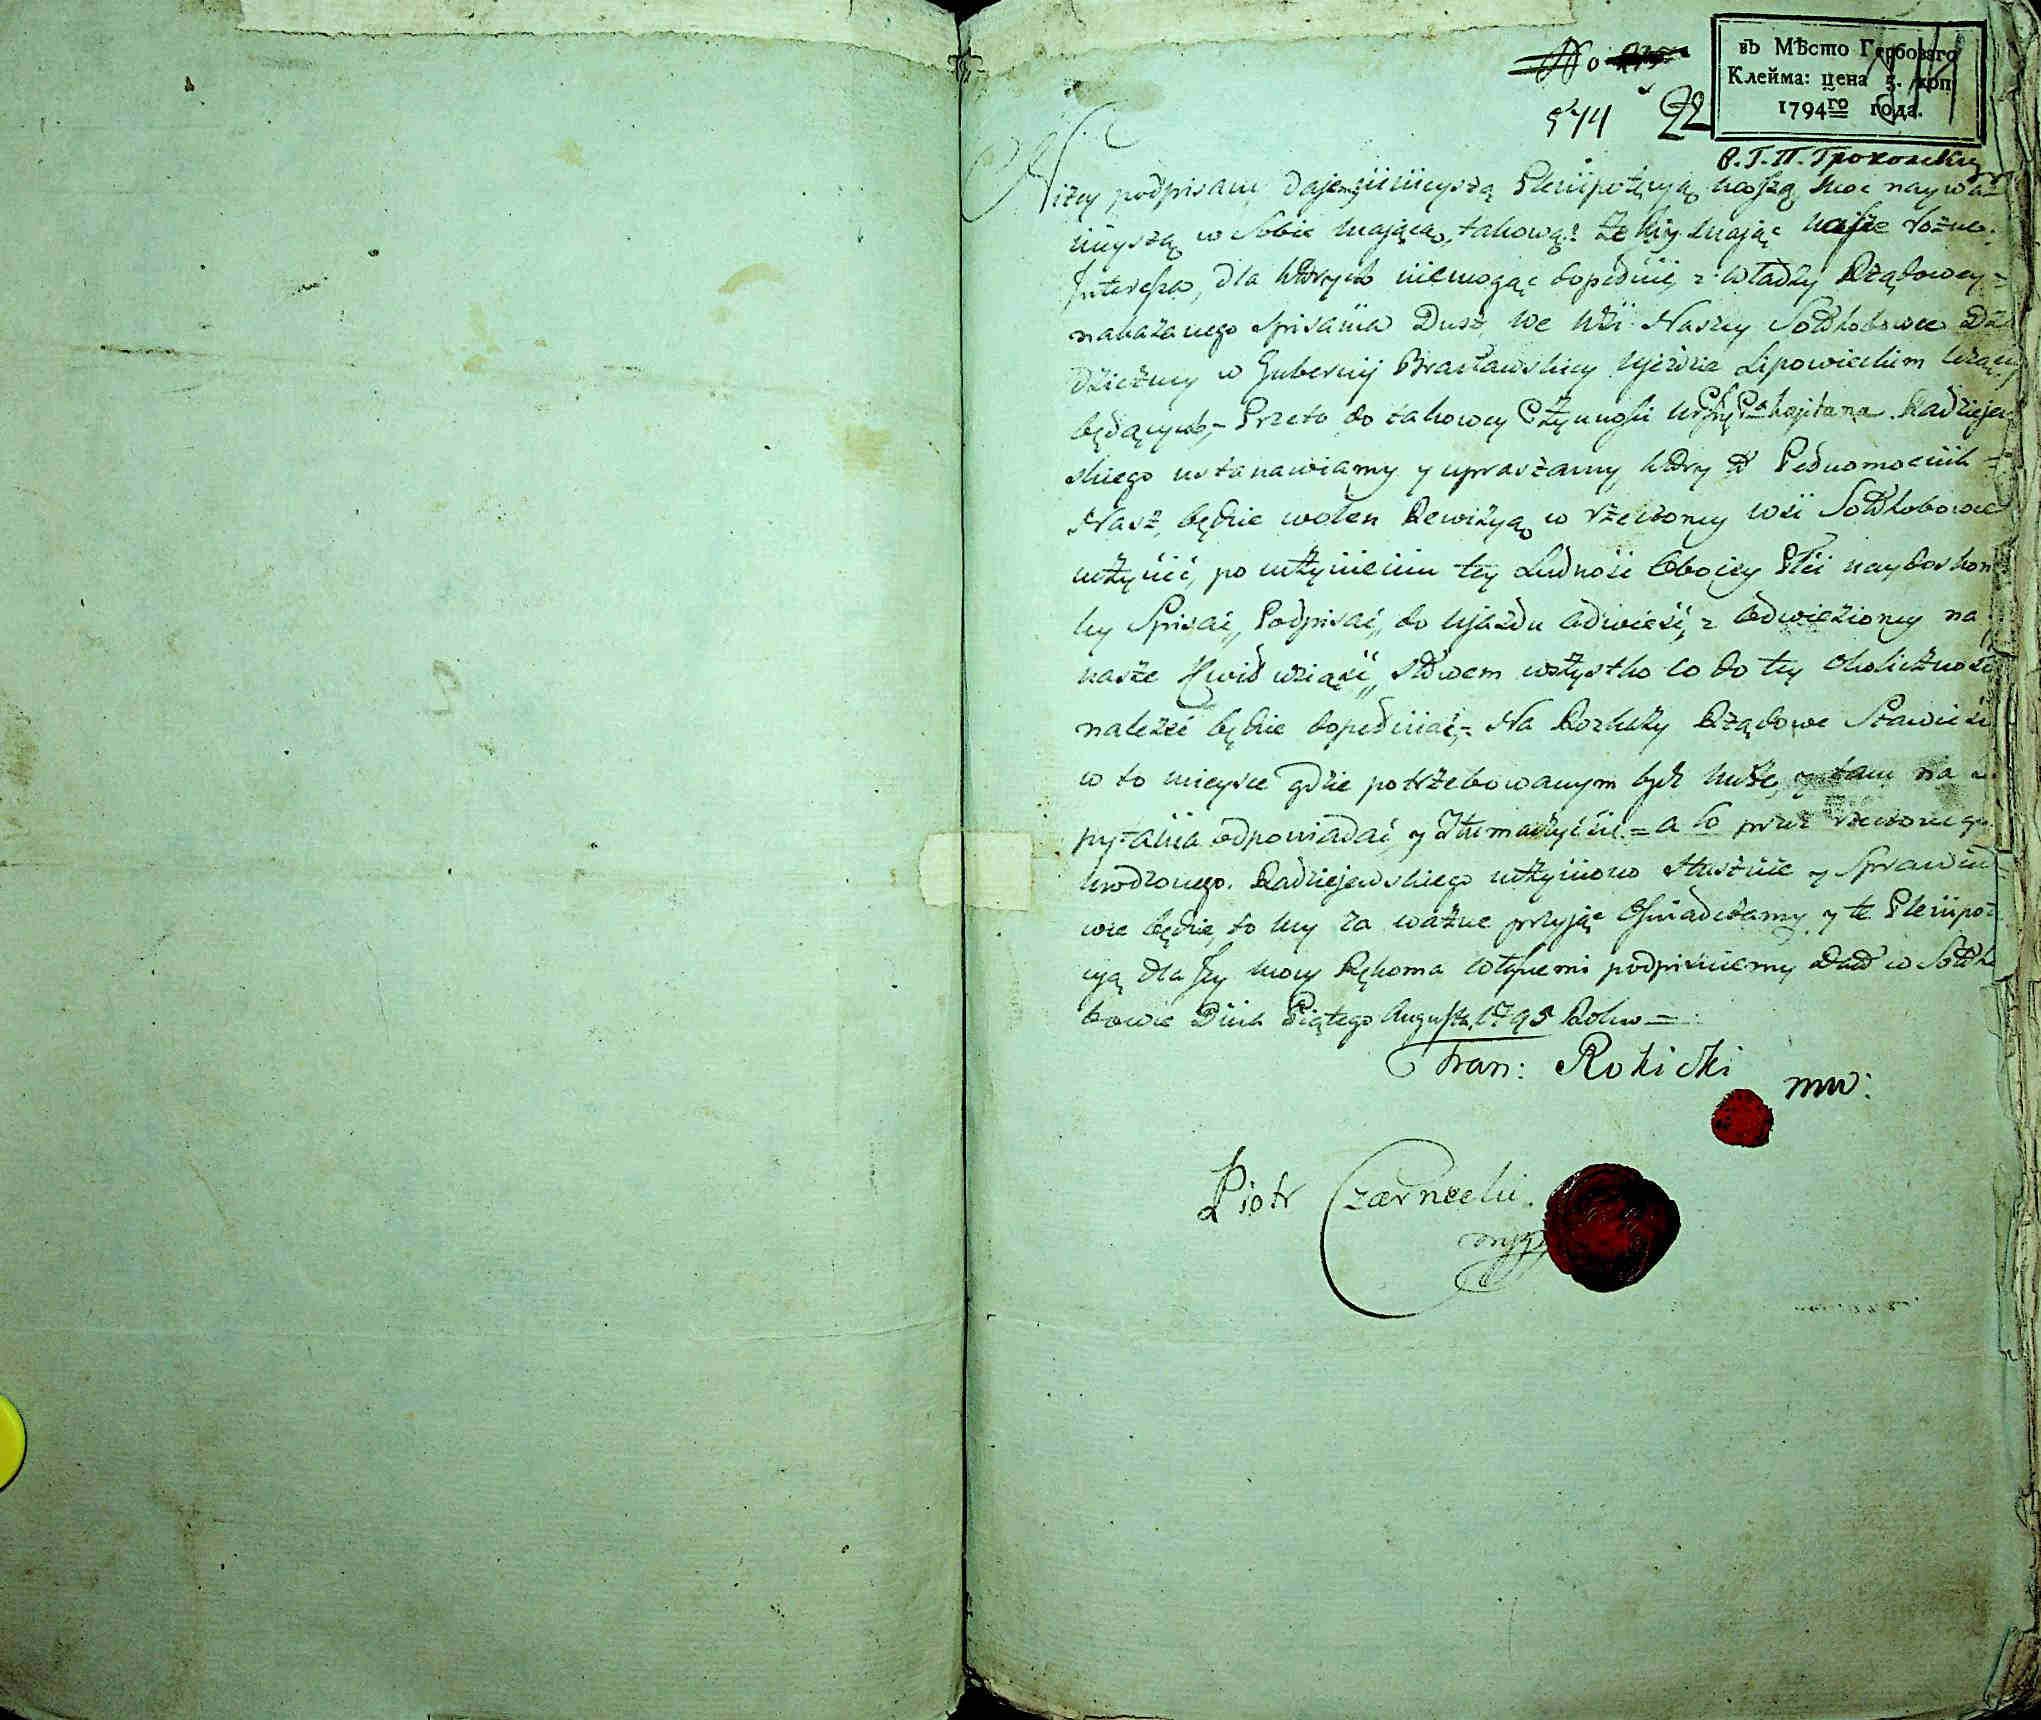 No
544 22
въ Мѣсто Гербоваго
Клейма: цена 5. коп
1794го года.
В. Г. П. Гроховскиу
Niżey podpisany dajemy ninieyszą Plenipotęcyją naszą moc nayważ
nieyszą w Sobie mającą, takową: że my mając nasze rożne
Interesza, dla ktorych niemogąc dopełnić z władzy Rządowey
nakazanego Spisania Dusz, we wśi Naszey Sołhobowce
dźiczney w Gubernij Bracławskiey ujezdzie Lipowieckim
będących, Przeto do takowey Czynnośći Kapitana Radziejew
skiego ustanawiamy y upraszamy, ktory to Pełnomocnik
Nasz, będzie wolen Rewizyą w rzeczoney wśi Sołhobowce
uczynić, po uczynieniu tey Ludność Oboiey Płci naydoskon
ley Spisać, Podpisać, do ujazdu odwieść, z odwiezioney na
nasze Kwid wziąść, słowem wszystko co do tey okolicznośći
należeć będzie dopełniać, Na Rozkazy Rządowe Stawić się
w to mieysce gdzie potrzebowanym być może, y tam na
pytania odpowiadać y Tłumaczyć się = a co przez rzeczonego
Urodzonego Radziejewskiego uczyniono słusznie y Sprawiedli
wie będzie, to my za ważne przyjąć Oświadczamy y te Plenipot
cyą dla Jey mocy Rękoma własnemi podpisuiemy Dat w Sołho
bowce Dnia Piątego Augusta 1795 Roku =
Fran: Rokicki
mw:
Piotr Czarnecki
mpp